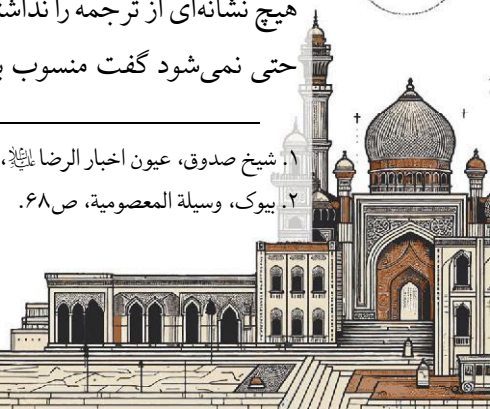 هیچ نشانه‌ای از ترجمه را نداشت
حتی نمی‌شود گفت منسوب ب
۱. شیخ صدوق، عیون اخبار الرضا علیه‌السلام،
۲. بیوک، وسیلة المعصومیة، ص۶۸.